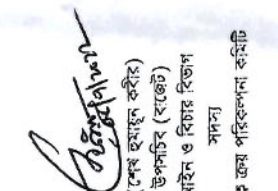 (শেখ হুমায়ূন কবীর)
উপসচিব (বাজেট)
আইন ও বিচার বিভাগ
সদস্য
ক্রয় পরিকল্পনা কমিটি